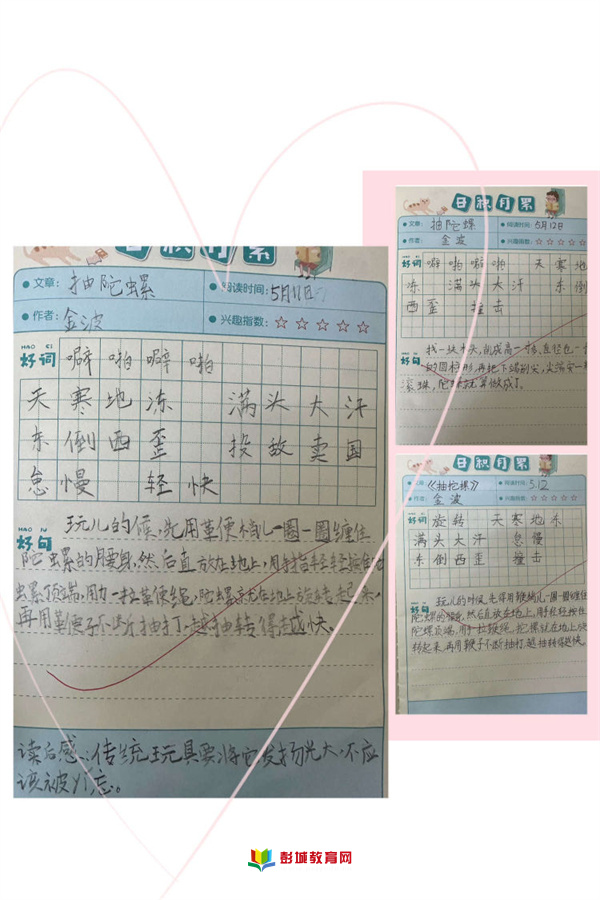 日积月累
文章：抽陀螺
阅读时间：5月11日
作者：金波
兴趣指数：☆☆☆☆☆
HAO CI
好词 噼啪噼啪
天寒地冻 满头大汗
东倒西歪 投敌卖国
怠慢 轻快
HAO JU
好句 玩儿的候,先用革便梢儿一圈一圈缠住
陀螺的腰身,然后直放在地上,用手指轻轻按住
虫累顶端,用力一拉革便绳,陀螺
再用革便子不断抽打,越抽转得越快。
读后感:传统玩具要将它发扬光大,不应
该被
日积月累
文章：抽陀螺
阅读时间：5月12日
作者：金波
兴趣指数：☆☆☆☆☆
好词 噼啪噼啪 天寒地
冻 满头大汗 东倒
西歪 撞击
好句 找一块木头,削成高一寸多、直径也一
的圆柱形,再把下端削尖,尖端安一
滚珠,陀螺就算做成了。
日积月累
文章：《抽陀螺》
阅读时间：5.12
作者：金波
兴趣指数：☆☆☆☆☆
好词 旋转 天寒地冻
满头大汗 怠慢
东倒西歪 撞击
好句 玩儿的时候,先得用鞭梢儿一圈一圈缠住
陀螺的腰身,然后直放在地上,用手轻轻按住
陀螺顶端,用力一拉鞭绳,陀螺就在地上
转起来,再用鞭子不断抽打,越抽转得越快。
彭城教育网